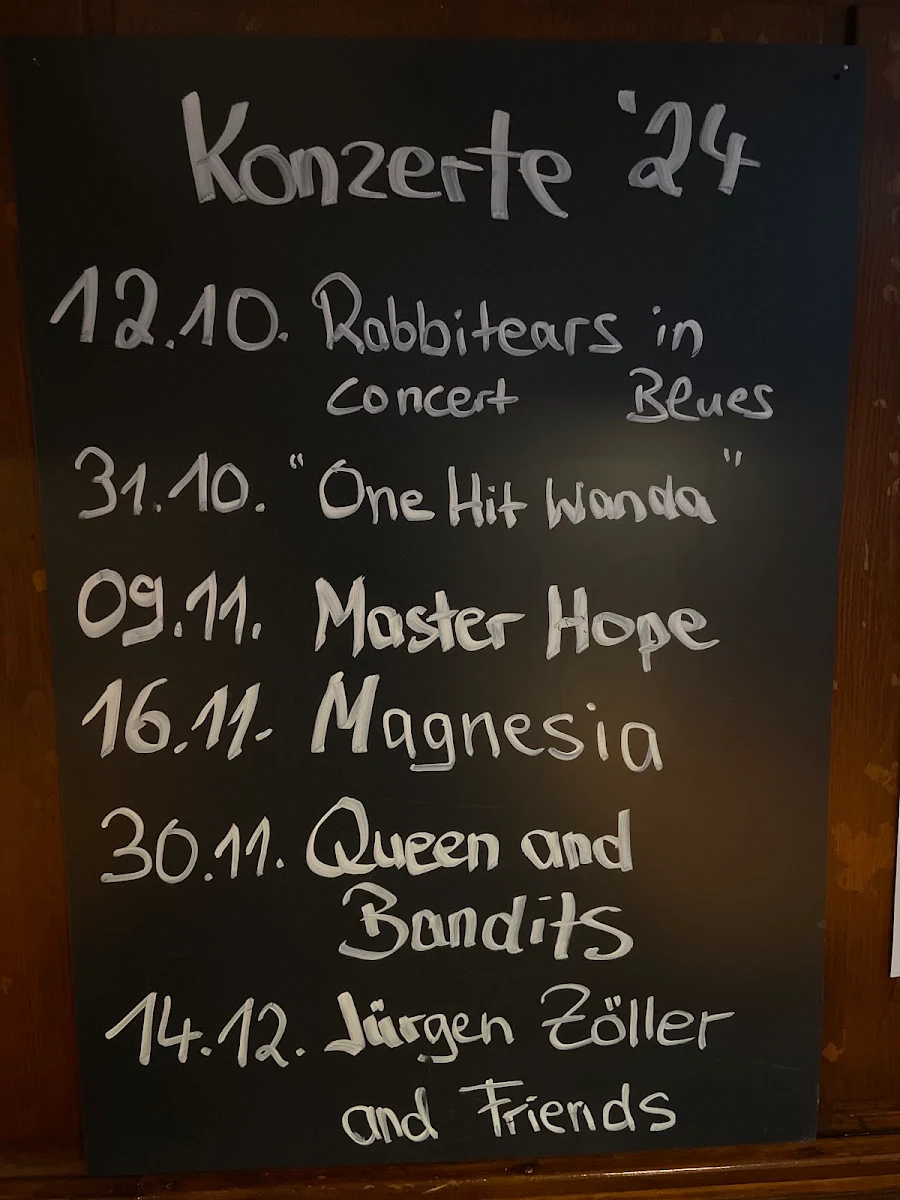 Konzerte '24
12.10. Rabbitears in
concert Blues
31.10. "One Hit Wanda"
09.11. Master Hope
16.11. Magnesia
30.11. Queen and
Bandits
14.12. Jürgen Zöller
and Friends